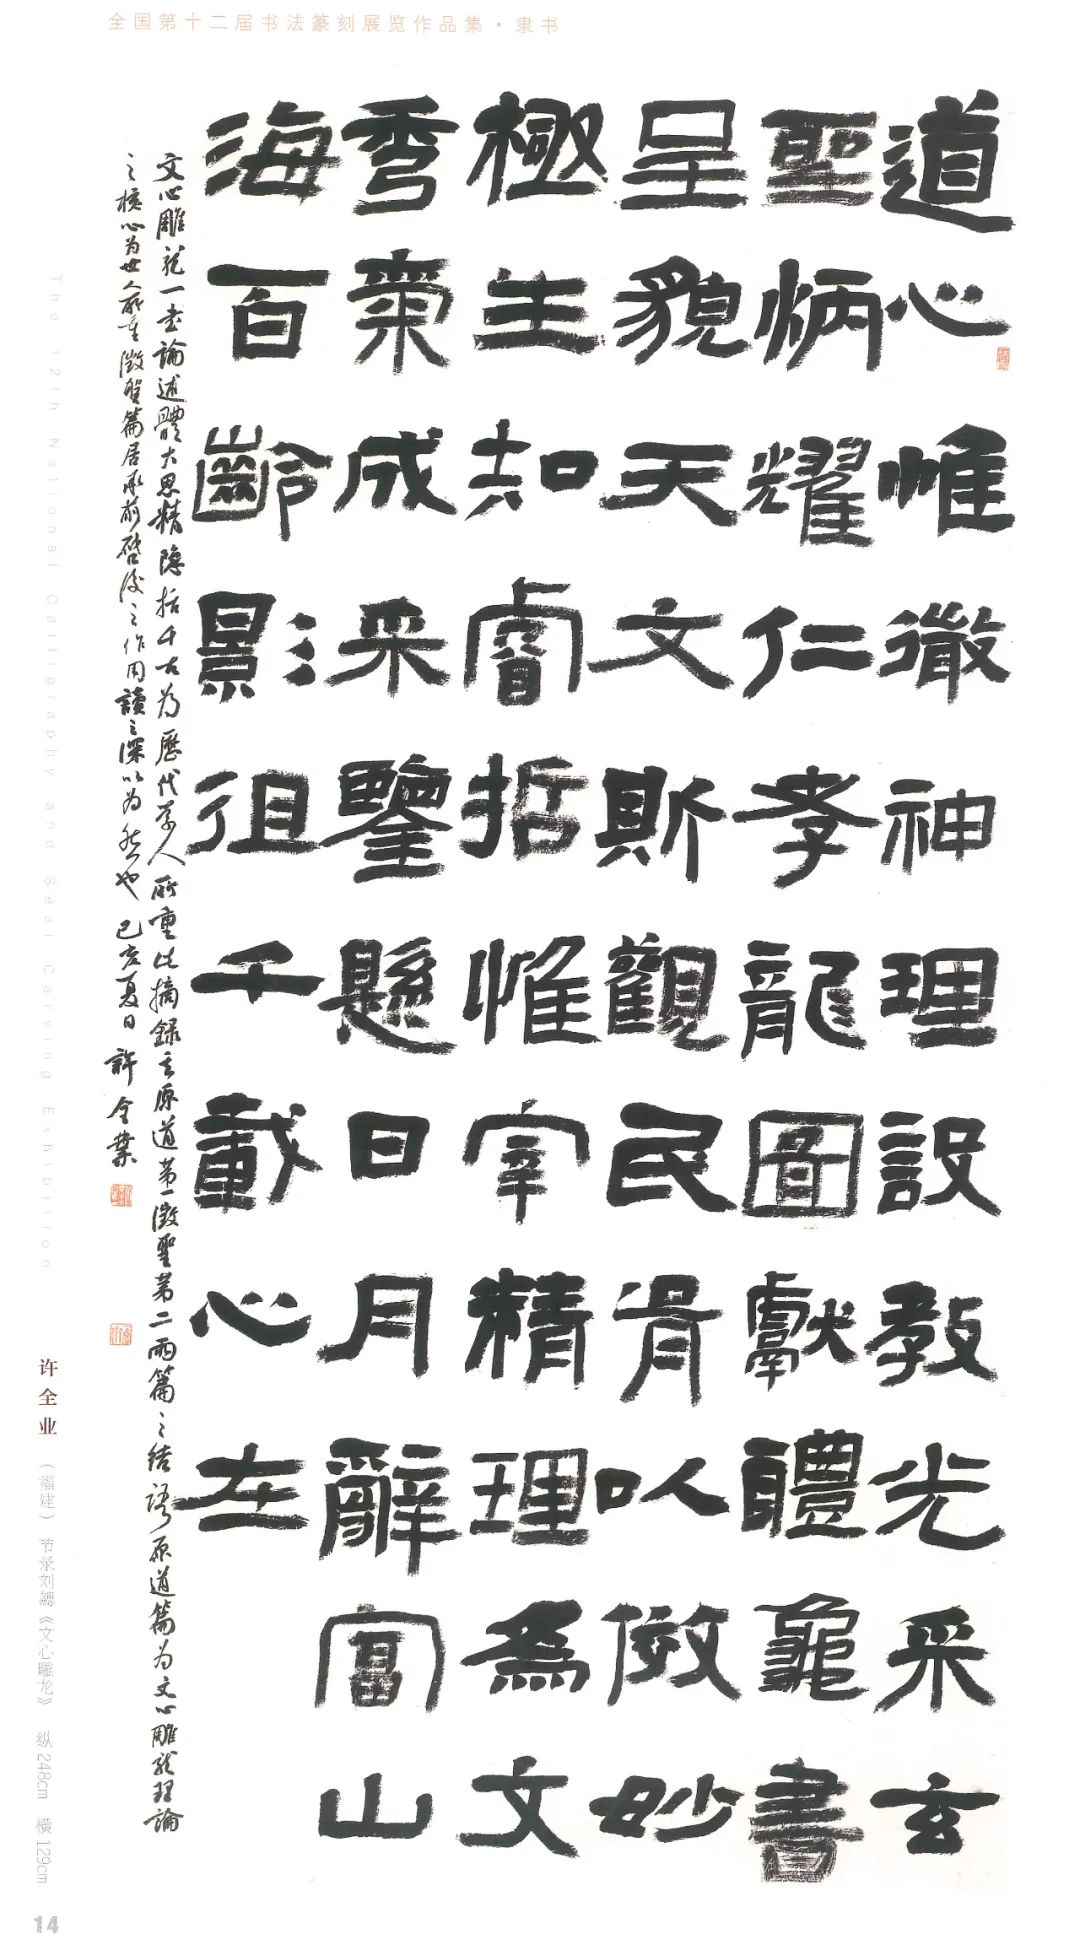 全国第十二届书法篆刻展览作品集·隶书
道心惟微神理設教光采玄
聖炳耀仁孝龍圖獻體龜書
呈貌天文斯觀民胥以倣妙
極生知睿哲惟宰精理為文
秀氣成采鑒懸日月辭富山
海百齡影徂千載心在
文心雕龍一書論述體大思精隐括千古為歷代學人所重此摘録其原道第一徵聖第二兩篇之結語原道篇為文心雕龍理論
之核心為世人所重徵聖篇居承前啓後之作用讀之深以為然也己亥夏日許全業
The 12th National Calligraphy and Seal Carving Exhibition
许全业（福建）节录刘勰《文心雕龙》 纵248cm 横129cm
14